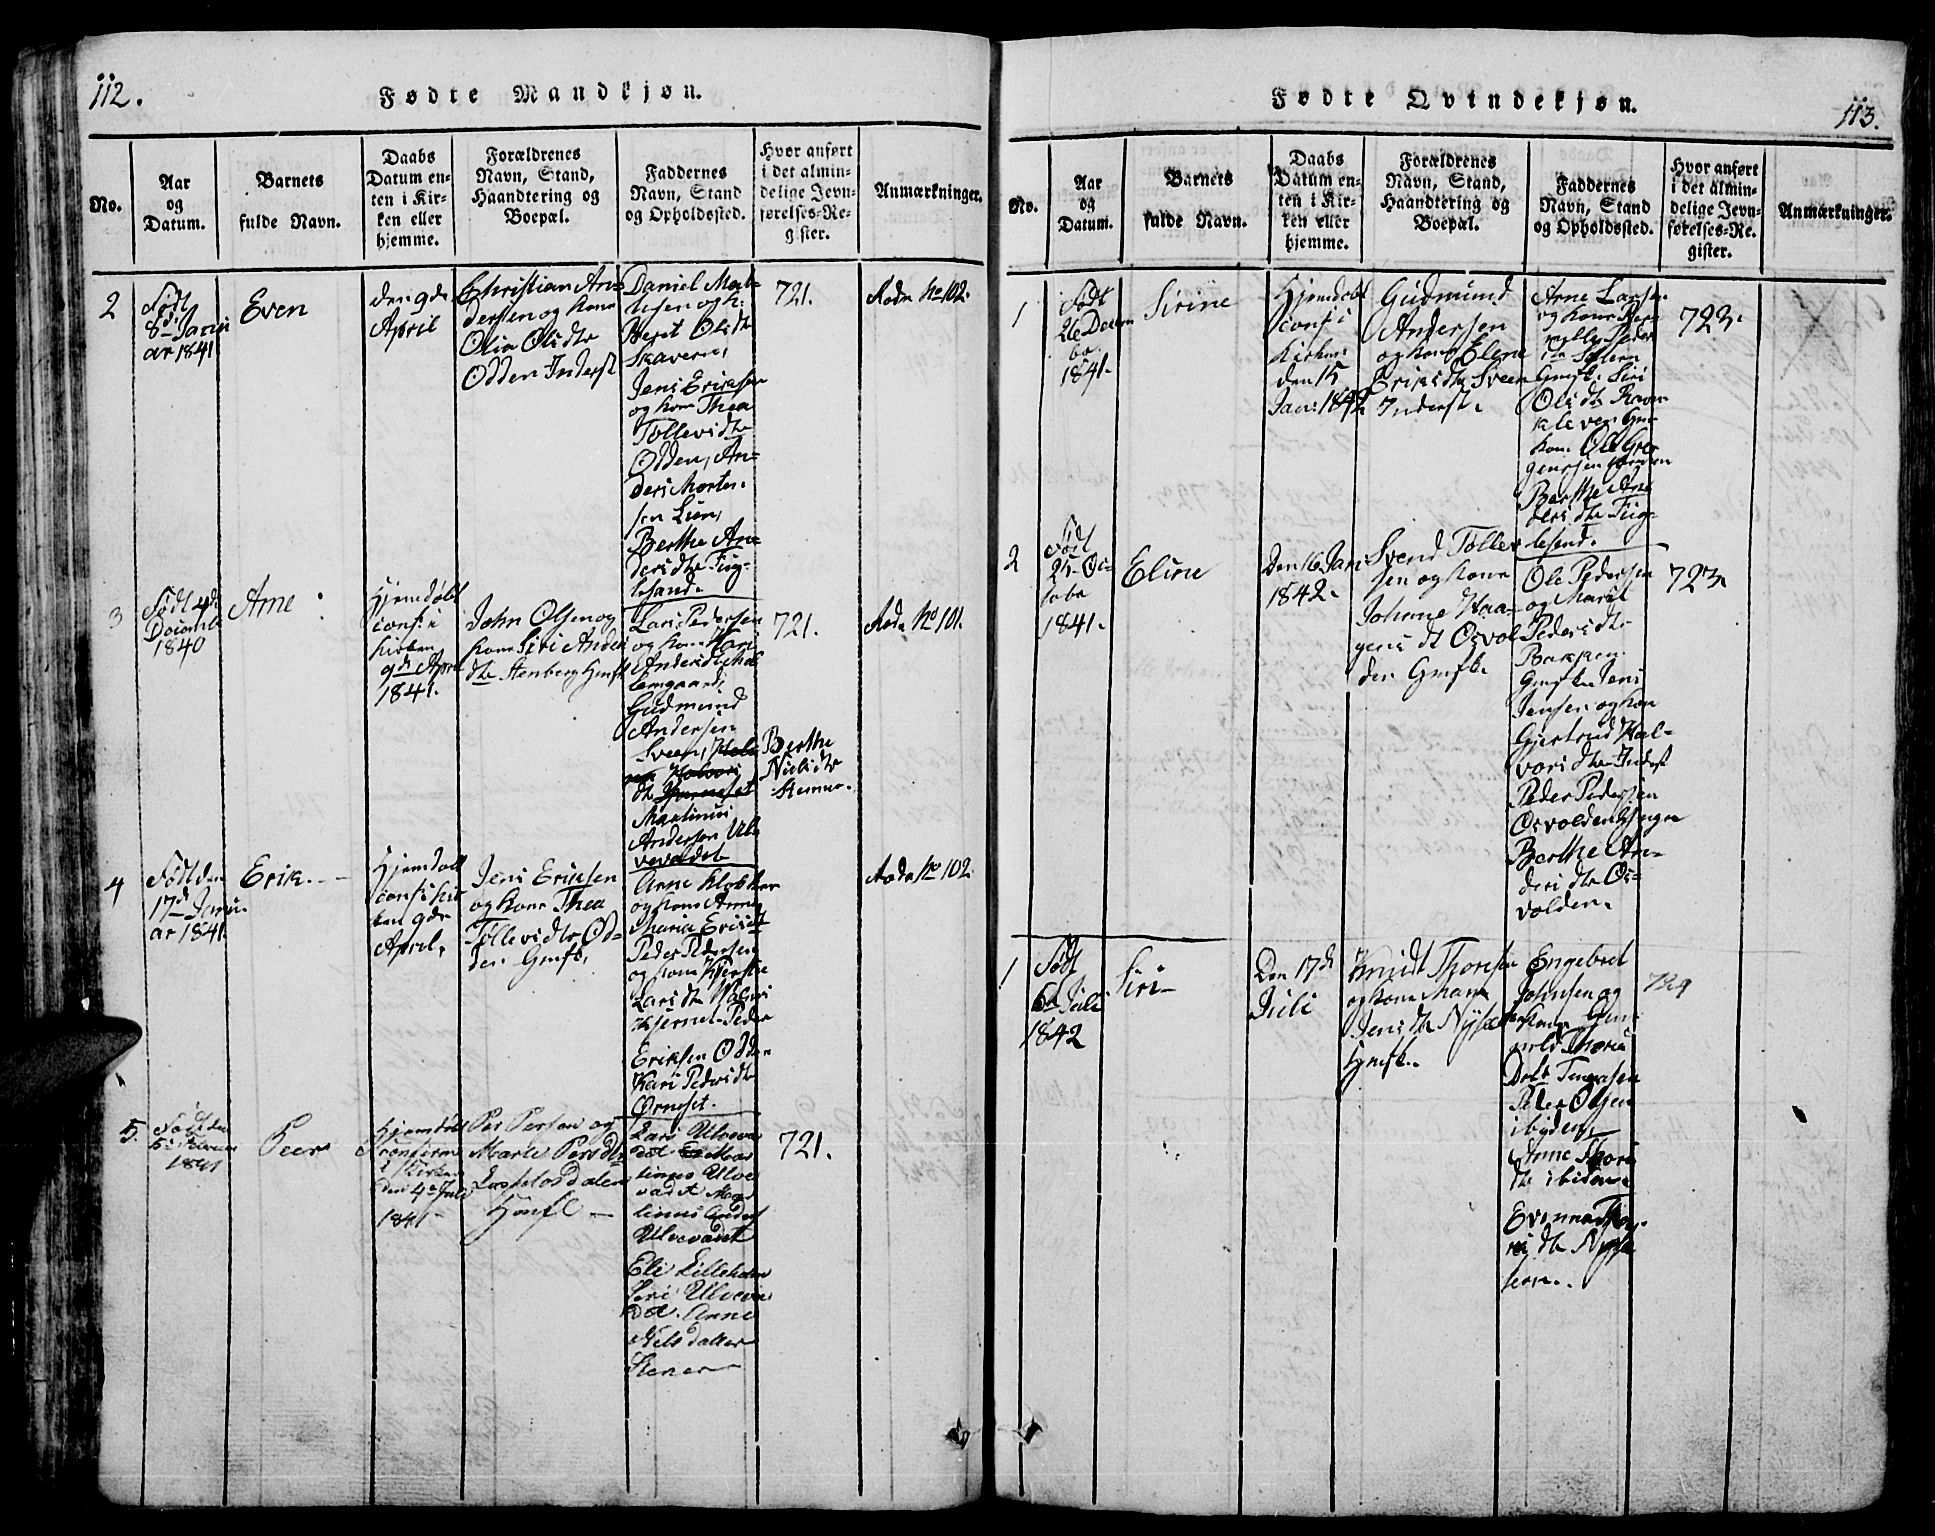 112.
Fødte Mandkjøn.
No.
Aar
og
Datum.
Barnets
fulde Navn.
Daabs
Datum en-
ten i Kir-
ken eller
hjemme.
Forældrenes
Navn, Stand,
Haandtering og
Boepæl.
Faddernes
Navn, Stand
og Opholdssted.
Hvor anført
i det almin-
delige Jevn-
førelses-Re-
gister.
Anmærkninger.
2
Født
8de Janu
ar 1841
Even
den 9de
April
Christian An-
dersen og Kone
Olia Olsdtr
Odden Inderst
Daniel Mat-
hisen og k.
Berit Olsdtr
Skaveren,
Jens Eriksen
og Kone Thea
Tollevsdtr
Odden, An-
ders Morten-
sen Lien,
Berthe An-
dersdtr Fug-
lesand.
721.
Aadn No 102.
3
Født 4de
Decemb
1840
Arne
Hjemdøbt
conf. i
Kirken
9de April
1841.
John Olsen og
Kone Siri Anders
dtr Stenberg Huusf
Lars Pedersen
og Kone Kari
Andersdtr Hol
lemgaard,
Gudmund
Andersen
Sveen,
dtr
Martinus
Andersen Ul-
vevadet
Berthe
Nielsdtr
Stener.
721.
Aadn No 101.
4
Født den
17de Janu-
ar 1841.
Erik.
Hjemdøbt
conf i Kir
ken 9de
April,
Jens Eriksen
og Kone Thea
Tollevsdtr Od-
den Huusf,
Arne Klokker
og Kone Anne
Maria Ericsdt
Peder Pedersen
og Kone Kjerstie
Larsdtr Halvor
Kjernet Peder
Eriksen Odden
Kari Pedersdtr
Ørneset.
Aadn No 102.
5.
Født den
1841
Peer
Hjemdøbt
Confirm
i Kirken
den 4de Juli
1841
Per Person og
Marte Persdtr
Dalen
Huusf
Lars Ulveva
det Mar
tinus Ulve
vadet Mag
linus Anders
Ulvevadet
Eli Lilleholm
Siri Ulveva
det. Anne
Nielsdatter
Stener
721.
113.
Fødte Qvindekjøn.
No.
Aar
og
Datum.
Barnets
fulde Navn.
Daabs
Datum en-
ten i Kir-
ken eller
hjemme.
Forældrenes
Navn, Stand,
Haandtering og
Boepæl.
Faddernes
Navn, Stand
og Opholdssted.
Hvor anført
i det almin-
delige Jevn-
førelses-Re-
gister.
Anmærkninger.
1
Født
26 Decem
br
1841.
Sirine
Hjemdøbt
conf i
Kirken
den 15
Jan: 1842
Gudmund
Andersen
og Kone Elene
Eriksdtr Sveen
Inderst.
Arne Larsen
og Kone
Peder
Huusf. Siri
Olsdtr Ravn
kleven
Kone Ole Gre
gersen
Berthe An
dersdtr Fug-
lesand.
723.
2
Født
25 Oc-
tobr
1841.
Eline
Den 16 Jan:
1842.
Svend Tollef
sen og Kone
Johanne Haa-
gensdt Osvol
den Huusf.
Ole Pedersen
og Marit
Pedersdtr
Bakken
Huusf. Jens
Jensen og Kone
Gjertrud Hal-
vorsdtr Inderst
Peder Pedersen
Osvolden Ungk
Berthe An-
dersdtr Os-
volden.
723.
1
Født
6de Juli
1842
Siri
Den 17de
Juli
Knudt Thoresen
og Kone Mari
Jensdtr Nyseter
Huusf.
Engebret
Johnsen og
Kone Gun-
nild Thors
Datr
Peder Olsen
ibidem
Anne Thors
dtr ibidem
dtr Nyse
teren.
724